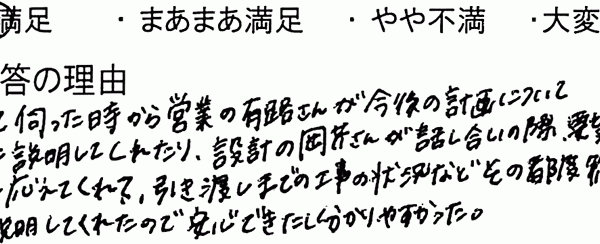 満足 ・まあまあ満足 ・やや不満 ・大変
答の理由
て伺った時から営業の有路さんが今後の計画について
説明してくれたり、設計の岡芹さんが話し合いの際、要望
応えてくれて、引き渡しまでの工事の状況などその都度
説明してくれたので安心できたし分かりやすかった。